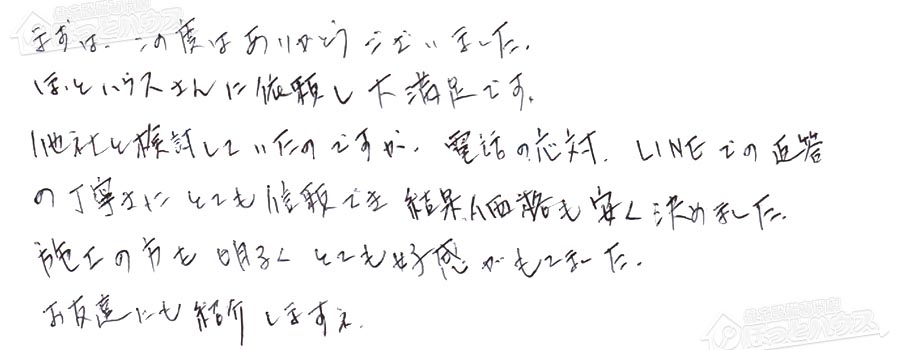 まずは、この度はありがとうございました。
ほっとハウスさんに依頼した満足です。
他社も検討していたのですが、電話の応対、LINEでの返答
の丁寧さにとても信頼でき結果価格も安く決めました。
施工の方も明るくとても好感がもてました。
お友達にも紹介しますネ。
ほっとハウス
ほっとハウス